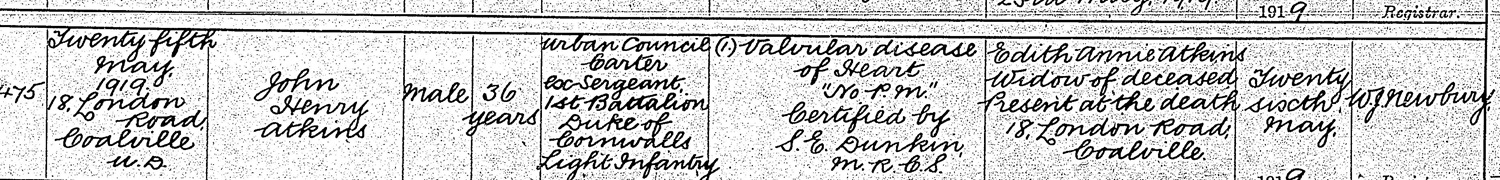 1919
Registrar.
475
Twenty fifth
May.
1919.
18, London
Road,
Coalville
U.D.
John
Henry
Atkins
Male
36
years
Urban Council
Carter
Ex-Sergeant,
1st Battalion
Duke of
Cornwalls
Light Infantry
(1) Valvular disease
of Heart
"No P.M."
Certified by
S.E. Dunkin,
M.R.C.S.
Edith Annie Atkins
Widow of deceased
Present at the death
18, London Road,
Coalville.
Twenty
sixth
May.
W.J Newbury